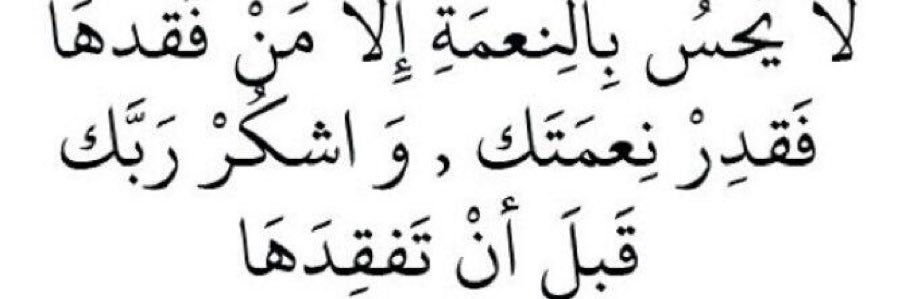 لا يحسُ بِالِنعمَةِ إِلا مَنْ فَقدهَا
فَقدِرْ نِعمَتَك , وَ اشكُرْ رَبَّك
قَبلَ أنْ تَفقِدَهَا